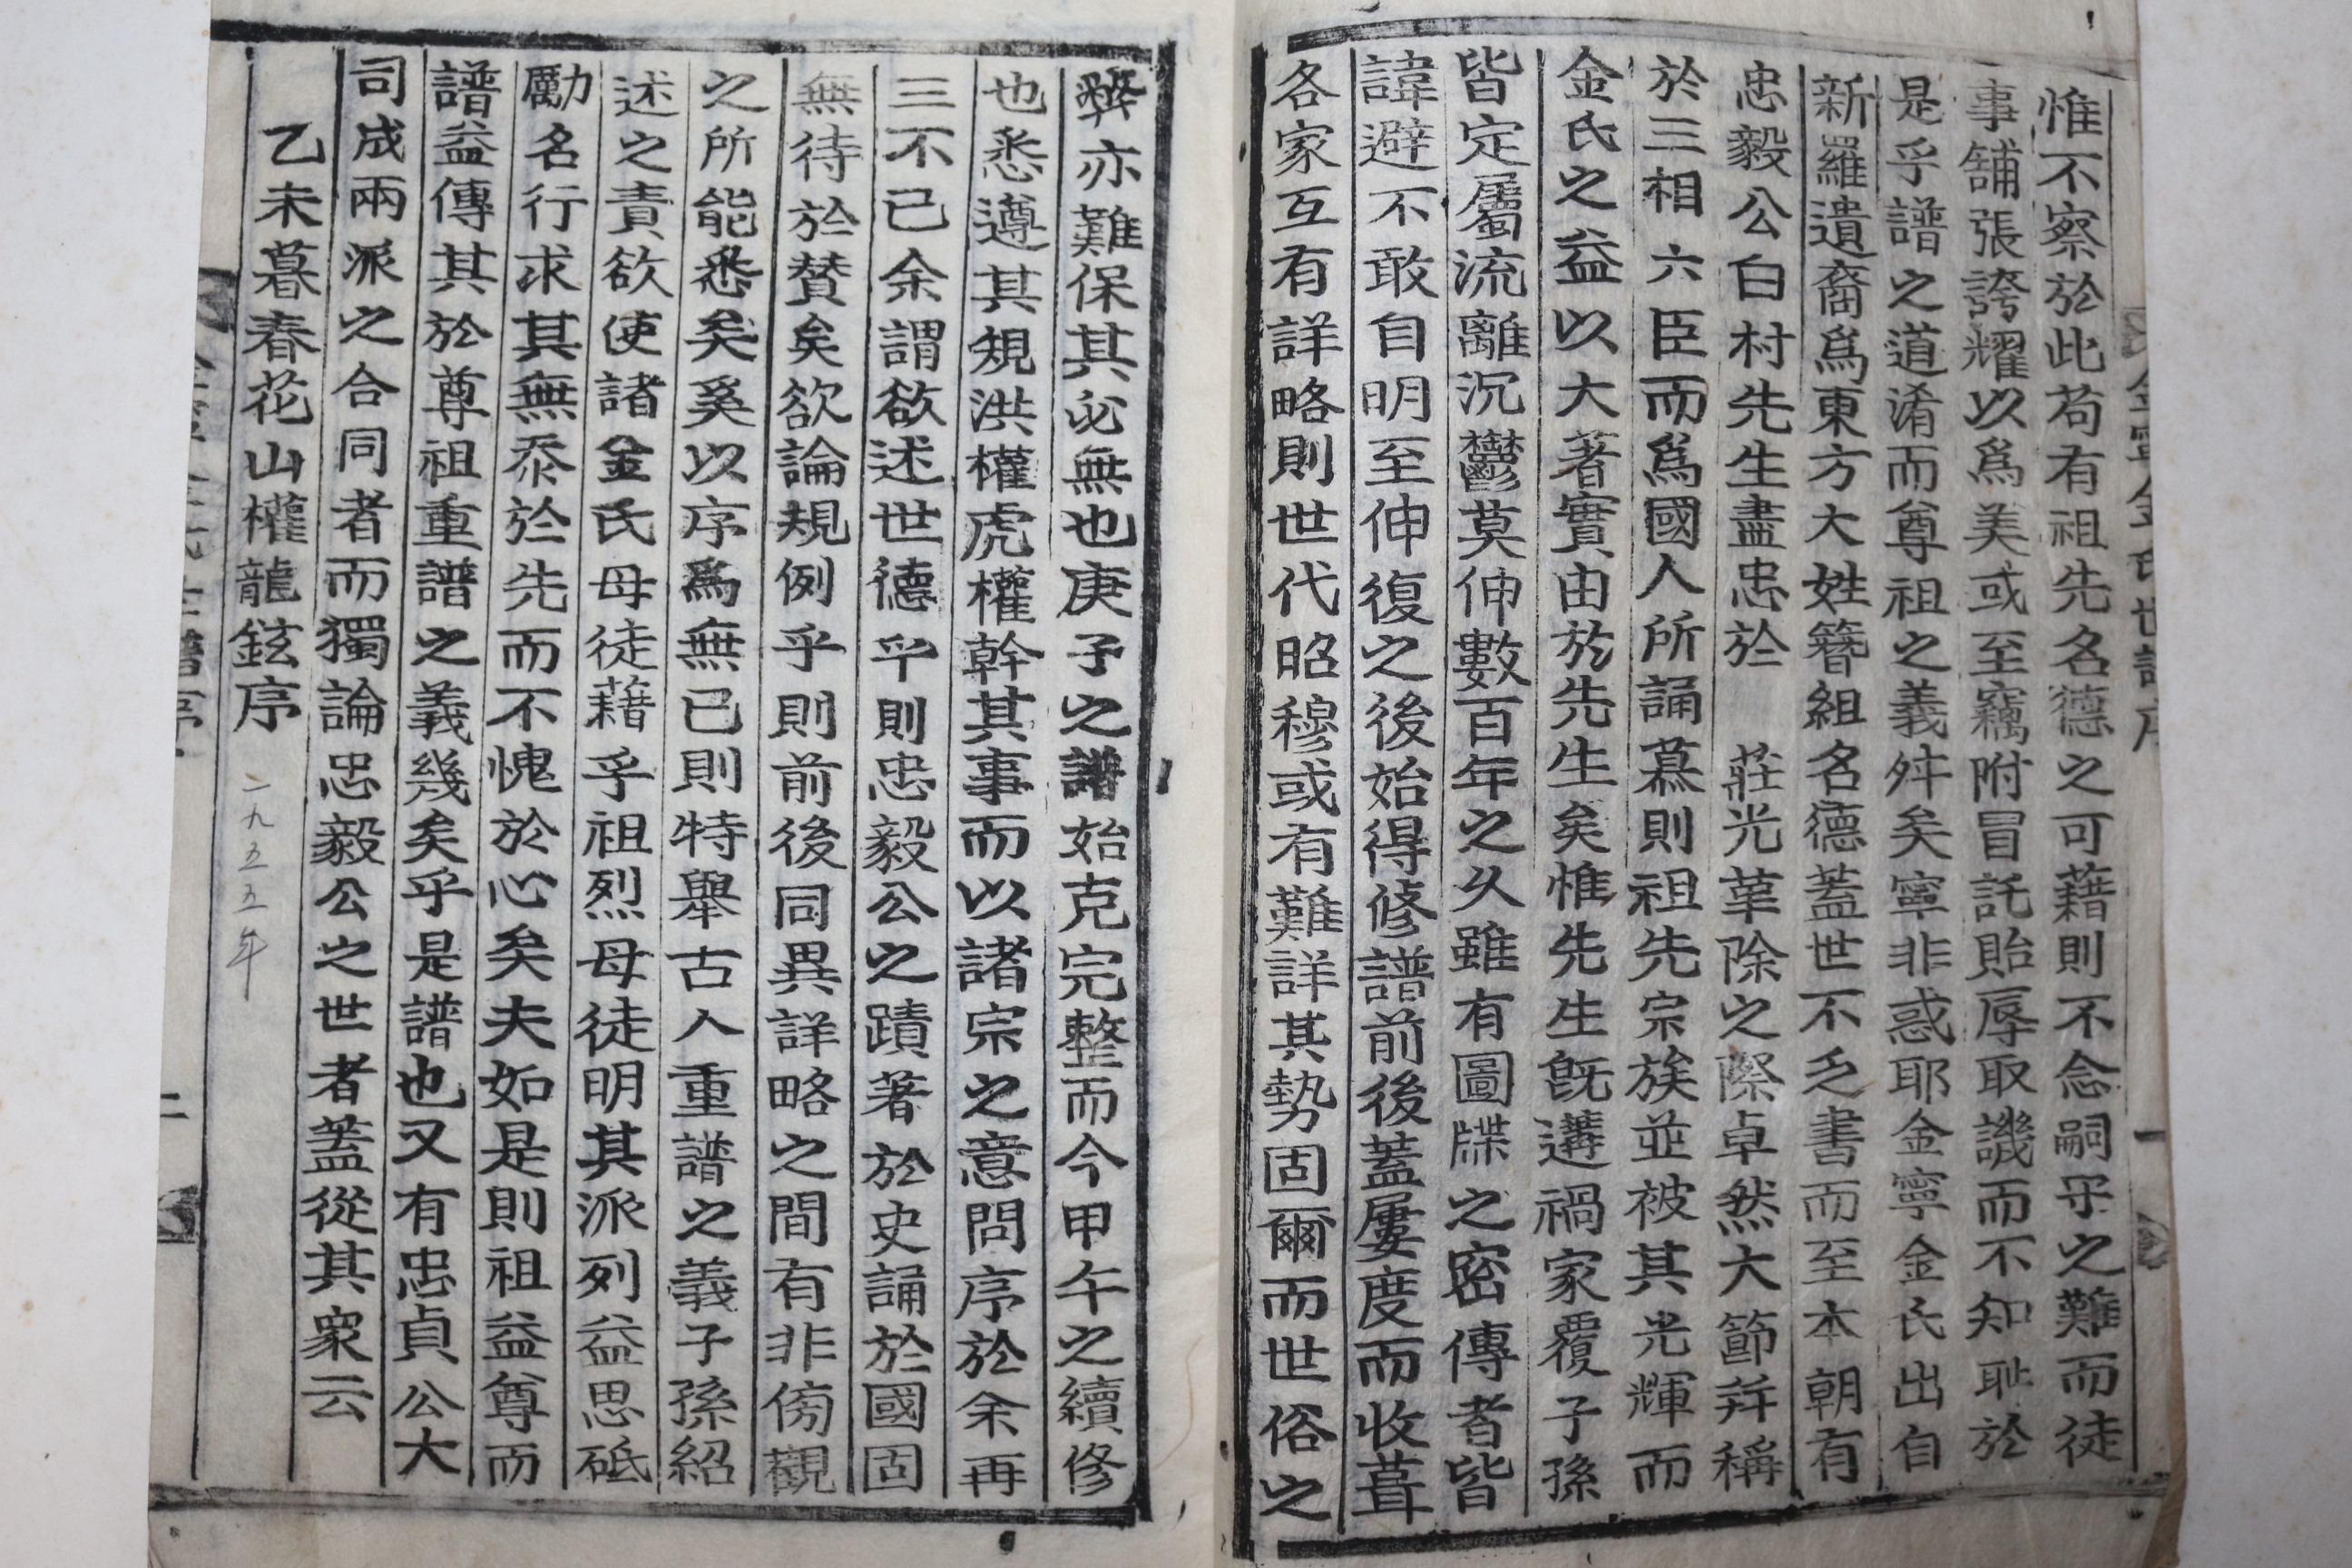 惟不察於此苟有祖先名德之可藉則不念嗣守之難而徒
事舖張誇耀以爲美或至竊附冒託貽辱取譏而不知耻於
是乎譜之道淆而尊祖之義舛矣寧非惑耶金寧金氏出自
新羅遺裔爲東方大姓簪組名德蓋世不乏書而至本朝有
忠毅公白村先生盡忠於 莊光革除之際卓然大節幷稱
於三相六臣而爲國人所誦慕則祖先宗族並被其光輝而
金氏之益以大著實由於先生矣惟先生旣遘禍家覆子孫
皆定屬流離沉鬱莫伸數百年之久雖有圖牒之密傳者皆
諱避不敢自明至伸復之後始得修譜前後蓋屢度而收葺
各家互有詳略則世代昭穆或有難詳其勢固爾而世俗之
弊亦難保其必無也庚子之譜始克完整而今甲午之續修
也悉遵其規洪權虎權幹其事而以諸宗之意問序於余再
三不已余謂欲述世德乎則忠毅公之蹟著於史誦於國固
無待於贊矣欲論規例乎則前後同異詳略之間有非傍觀
之所能悉矣奚以序爲無已則特舉古人重譜之義子孫紹
述之責欲使諸金氏母徒藉乎祖烈母徒明其派列益思砥
勵名行求其無忝於先而不愧於心矣夫如是則祖益尊而
譜益傳其於尊祖重譜之義幾矣乎是譜也又有忠貞公大
司成兩派之合同者而獨論忠毅公之世者蓋從其衆云
乙未暮春花山權龍鉉序
一九五五年
金寧金氏世譜序
一
二